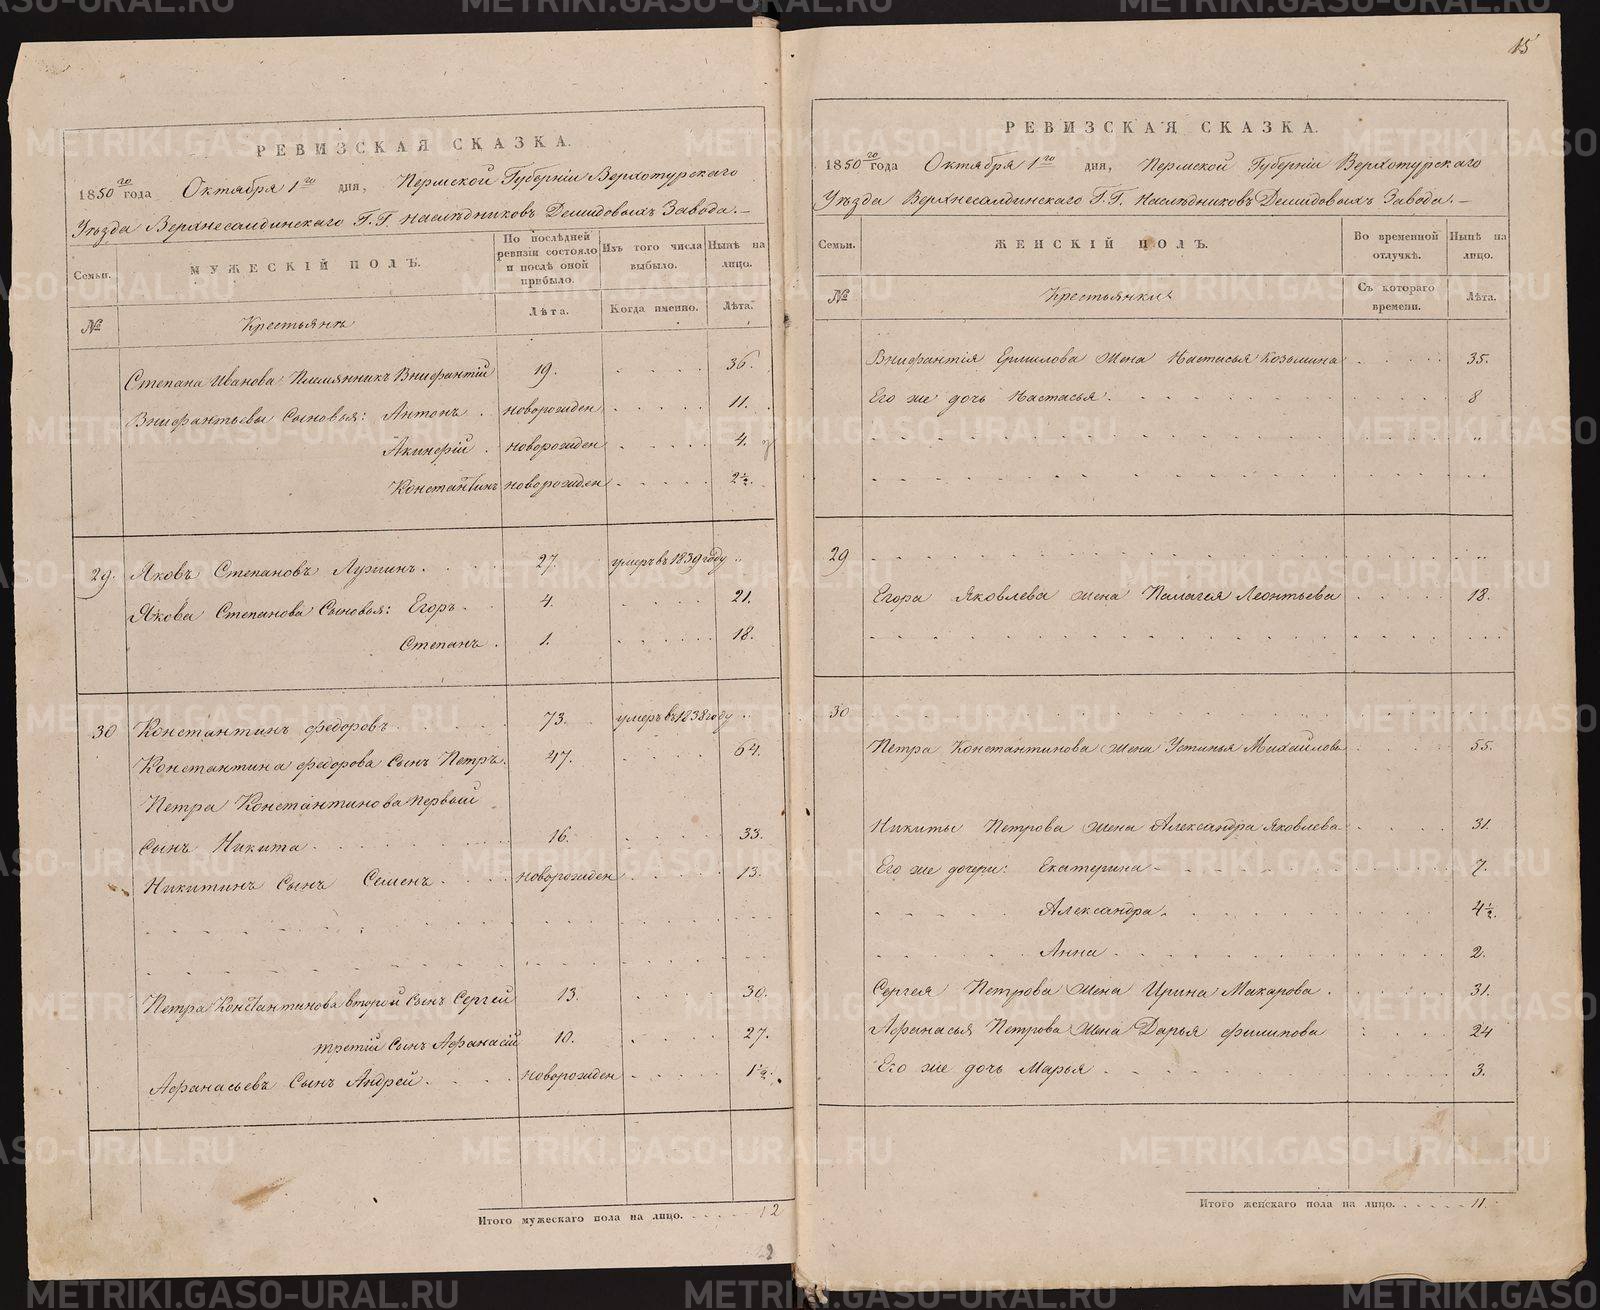 РЕВИЗСКАЯ СКАЗКА.
1850го года Октября 1го дня, Пермской Губернiи Верхотурскаго
Уѣзда Верхнесалдинскаго Г.Г. Наслѣдниковъ Демидовыхъ Завода.
Семьи.
МУЖЕСКIЙ ПОЛЪ.
По послѣдней ревизiи состояло и послѣ оной прибыло.
Изъ того числа выбыло.
Нынѣ на лицо.
№
Крестьянъ
Лѣта.
Когда именно.
Лѣта.
Степана Иванова Племянникъ Внифантiй 19. 36.
Внифантьевы Сыновья: Антонъ. новорожден 11.
Акинфiй. новорожден 4.
Константинъ новорожден 2½.
29. Яковъ Степановъ Лужинъ. 27. умеръ въ 1839 году
Якова Степанова Сыновья: Егоръ. 4. 21.
Степанъ. 1. 18.
30 Константинъ Федоровъ. 73. умеръ въ 1838 году
Константина Федорова Сынъ Петръ. 47. 64.
Петра Константинова первый
Сынъ Никита 16. 33.
Никитинъ Сынъ Семенъ. новорожден 13.
Петра Константинова второй Сынъ Сергей 13. 30.
третiй Сынъ Афанасiй 10. 27.
Афанасьевъ Сынъ Андрей. новорожден 1½.
Итого мужескаго пола на лицо. 12
15
РЕВИЗСКАЯ СКАЗКА.
1850го года Октября 1го дня, Пермской Губернiи Верхотурскаго
Уѣзда Верхнесалдинскаго Г.Г. Наслѣдниковъ Демидовыхъ Завода.
Семьи.
ЖЕНСКIЙ ПОЛЪ.
Во временной отлучкѣ.
Нынѣ на лицо.
№
Крестьянки
Съ котораго времени.
Лѣта.
Внифантiя Ермилова жена Настасья Козьмина 35.
Его же дочь Настасья. 8
29
Егора Яковлева жена Палагея Леонтьева 18.
30
Петра Константинова жена Устинья Михайлова 55.
Никиты Петрова жена Александра Яковлева 31.
Его же дочери: Екатерина 7.
Александра. 4½.
Анна 2.
Сергея Петрова жена Ирина Макарова. 31.
Афанасья Петрова жена Дарья Филипова 24
Его же дочь Марья 3.
Итого женскаго пола на лицо. 11
METRIKI.GASO-URAL.RU